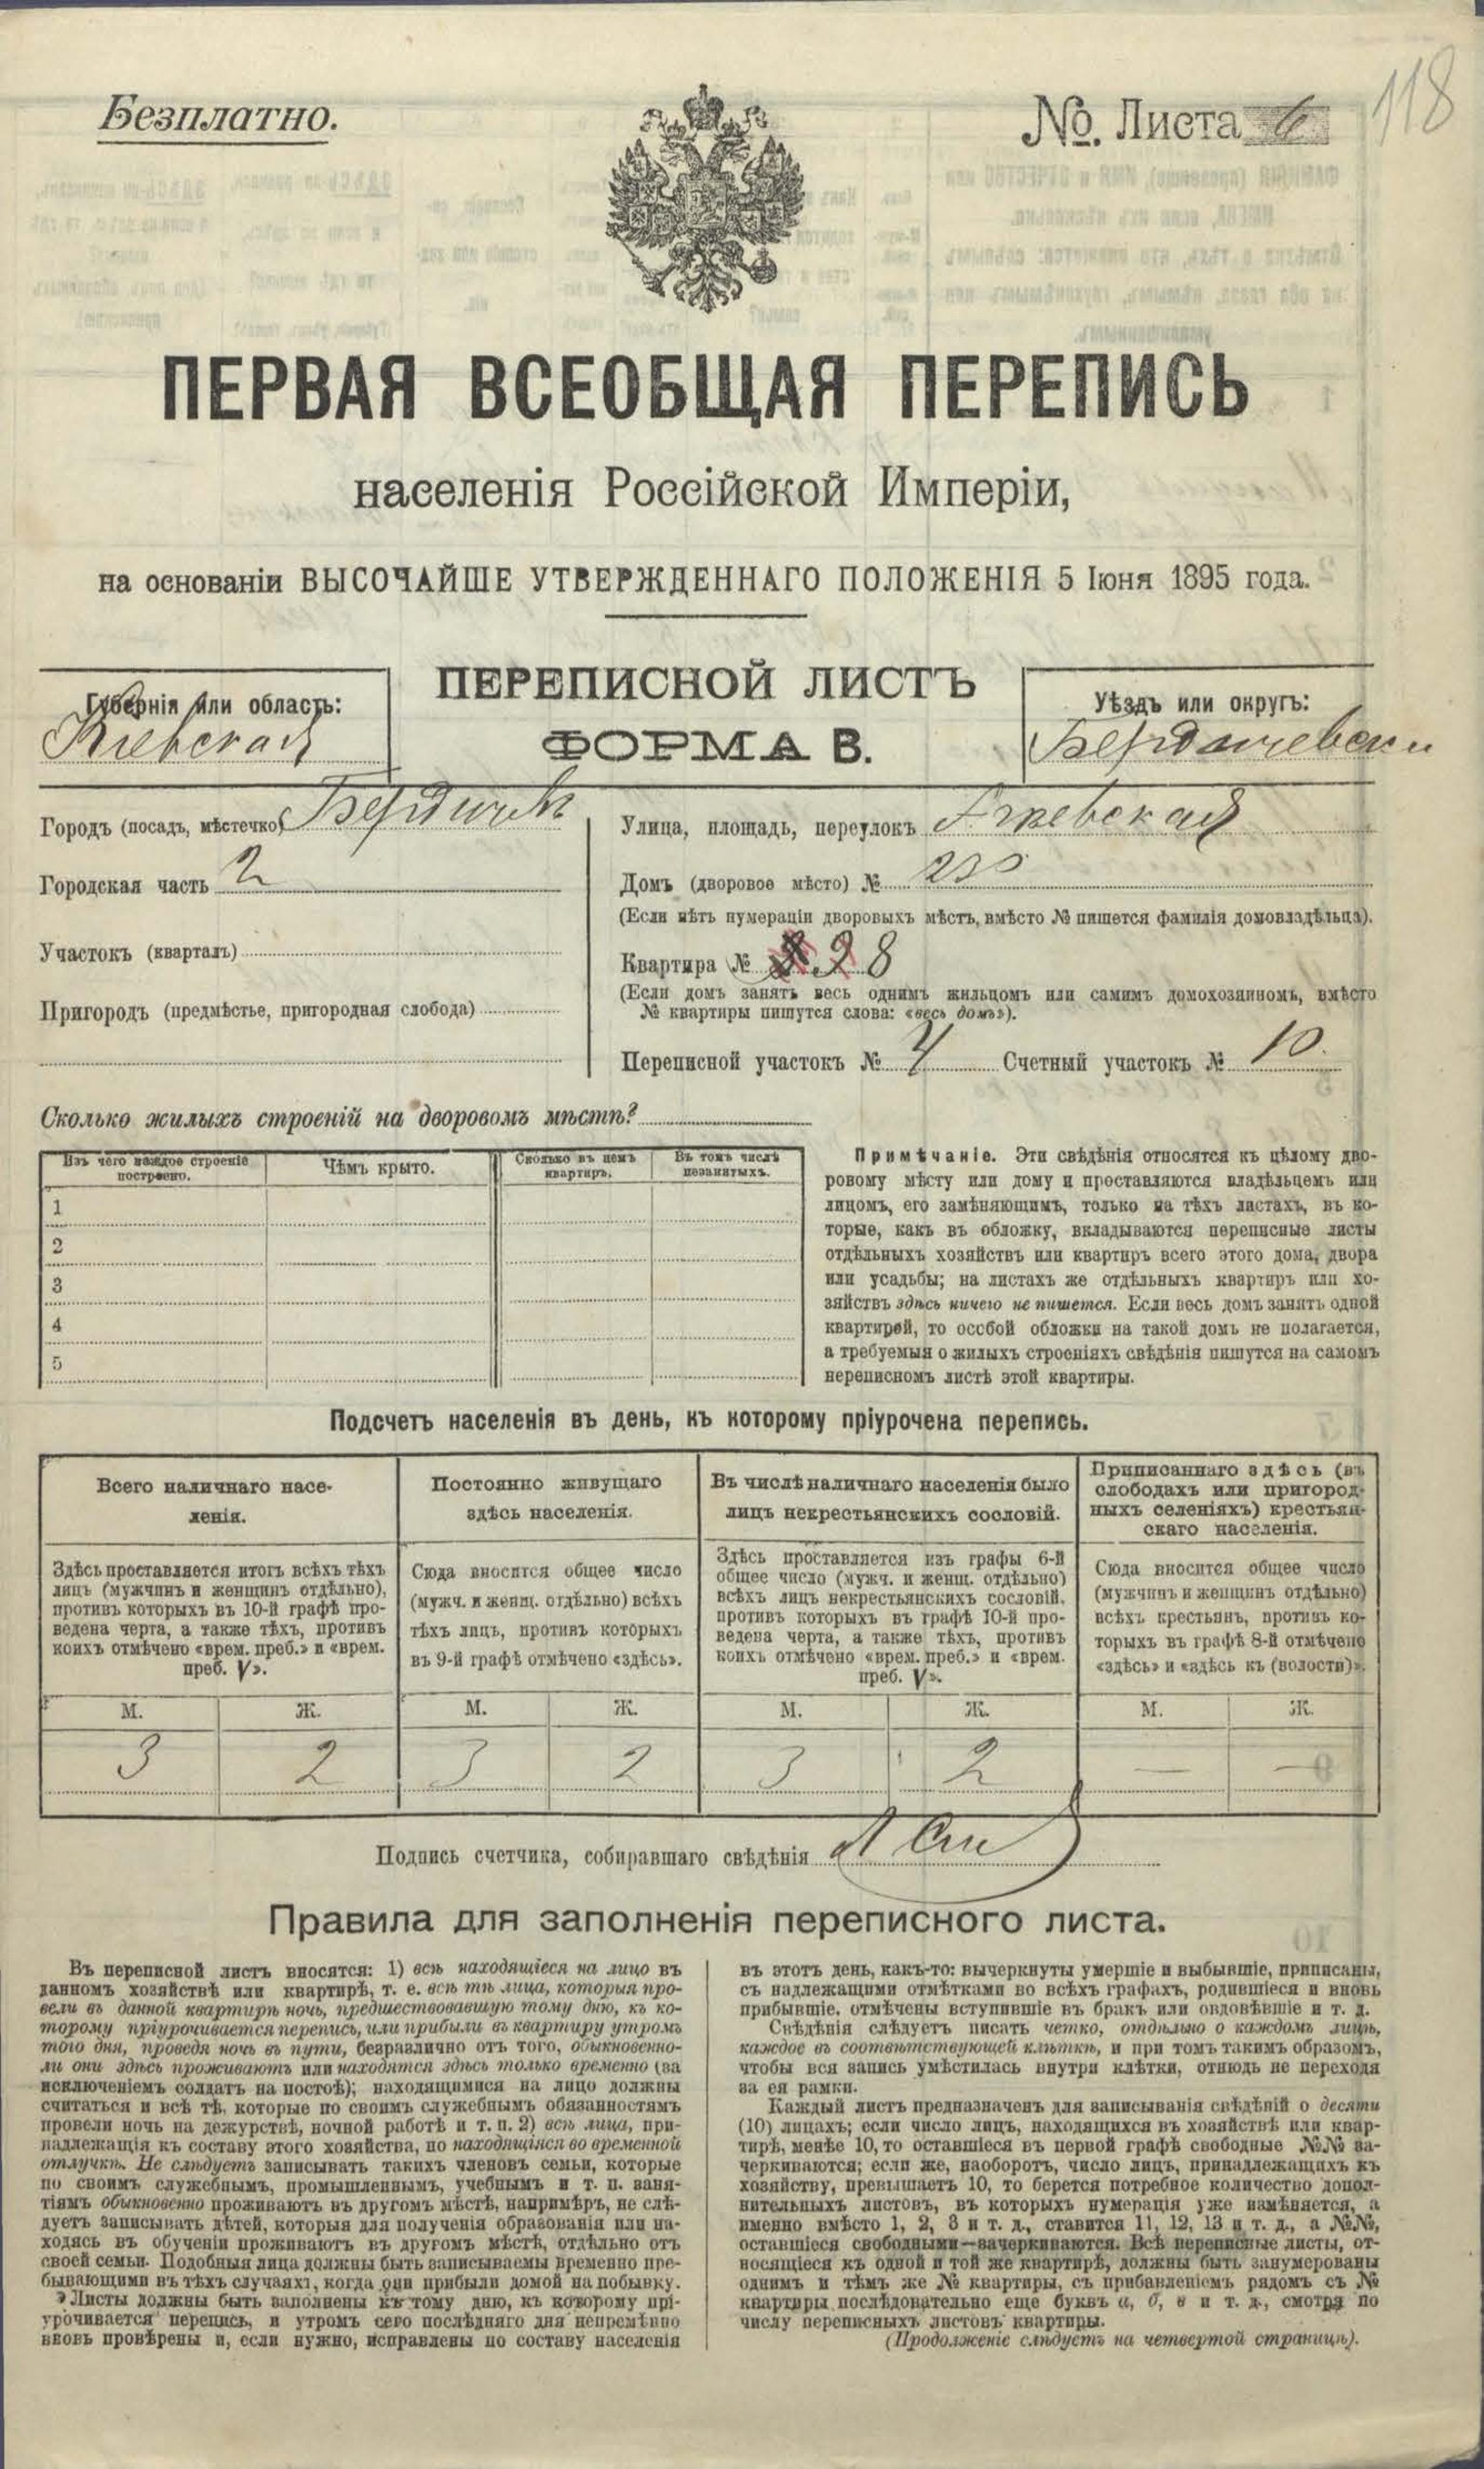 Безплатно.
№. Листа 6
118
ПЕРВАЯ ВСЕОБЩАЯ ПЕРЕПИСЬ
населенія Россійской Имперіи,
на основаніи ВЫСОЧАЙШЕ УТВЕРЖДЕННАГО ПОЛОЖЕНІЯ 5 Іюня 1895 года.
ПЕРЕПИСНОЙ ЛИСТЪ
ФОРМА В.
Губернія или область:
Кіевская
Уѣздъ или округъ:
Бердичевски
Городъ (посадъ, мѣстечко) Бердичев
Городская часть 2
Участокъ (кварталъ)
Пригородъ (предмѣстье, пригородная слобода)
Улица, площадь, переулокъ
Домъ (дворовое мѣсто) № 230
(Если нѣтъ нумераціи дворовыхъ мѣстъ, вмѣсто № пишется фамилія домовладѣльца).
Квартира № 28
(Если домъ занятъ весь однимъ жильцомъ или самимъ домохозяиномъ, вмѣсто
№ квартиры пишутся слова: «весь домъ»).
Переписной участокъ № 4 Счетный участокъ № 10.
Сколько жилыхъ строеній на дворовомъ мѣстѣ?
Изъ чего каждое строеніе построено.
Чѣмъ крыто.
Сколько въ немъ квартиръ.
Въ томъ числѣ незанятыхъ.
1
2
3
4
5
Примѣчаніе. Эти свѣдѣнія относятся къ цѣлому дво-
ровому мѣсту или дому и проставляются владѣльцемъ или
лицомъ, его замѣняющимъ, только на тѣхъ листахъ, въ ко-
торые, какъ въ обложку, вкладываются переписные листы
отдѣльныхъ хозяйствъ или квартиръ всего этого дома, двора
или усадьбы; на листахъ же отдѣльныхъ квартиръ или хо-
зяйствъ здѣсь ничего не пишется. Если весь домъ занятъ одной
квартирой, то особой обложки на такой домъ не полагается,
а требуемыя о жилыхъ строеніяхъ свѣдѣнія пишутся на самомъ
переписномъ листѣ этой квартиры.
Подсчетъ населенія въ день, къ которому пріурочена перепись.
Всего наличнаго насе-
ленія.
Постоянно живущаго
здѣсь населенія.
Въ числѣ наличнаго населенія было
лицъ некрестьянскихъ сословій.
Приписаннаго здѣсь (въ
слободахъ или пригород-
ныхъ селеніяхъ) крестьян-
скаго населенія.
Здѣсь проставляется итогъ всѣхъ тѣхъ
лицъ (мужчинъ и женщинъ отдѣльно),
противъ которыхъ въ 10-й графѣ про-
ведена черта, а также тѣхъ, противъ
коихъ отмѣчено «врем. преб.» и «врем.
преб. V».
Сюда вносится общее число
(мужч. и женщ. отдѣльно) всѣхъ
тѣхъ лицъ, противъ которыхъ
въ 9-й графѣ отмѣчено «здѣсь».
Здѣсь проставляется изъ графы 6-й
общее число (мужч. и женщ. отдѣльно)
всѣхъ лицъ некрестьянскихъ сословій,
противъ которыхъ въ графѣ 10-й про-
ведена черта, а также тѣхъ, противъ
коихъ отмѣчено «врем. преб.» и «врем.
преб. V».
Сюда вносится общее число
(мужчинъ и женщинъ отдѣльно)
всѣхъ крестьянъ, противъ ко-
торыхъ въ графѣ 8-й отмѣчено
«здѣсь» и «здѣсь къ (волости)».
М. Ж. М. Ж. М. Ж. М. Ж.
3 2 3 2 3 2 — —
Подпись счетчика, собиравшаго свѣдѣнія
Правила для заполненія переписного листа.
Въ переписной листъ вносятся: 1) всѣ находящіеся на лицо въ
данномъ хозяйствѣ или квартирѣ, т. е. всѣ тѣ лица, которыя про-
вели въ данной квартирѣ ночь, предшествовавшую тому дню, къ ко-
торому пріурочивается перепись, или прибыли въ квартиру утромъ
того дня, проведя ночь въ пути, безразлично отъ того, обыкновенно-
ли они здѣсь проживаютъ или находятся здѣсь только временно (за
исключеніемъ солдатъ на постоѣ); находящимися на лицо должны
считаться и всѣ тѣ, которые по своимъ служебнымъ обязанностямъ
провели ночь на дежурствѣ, ночной работѣ и т. п. 2) всѣ лица, при-
надлежащія къ составу этого хозяйства, но находящіяся во временной
отлучкѣ. Не слѣдуетъ записывать такихъ членовъ семьи, которые
по своимъ служебнымъ, промышленнымъ, учебнымъ и т. п. заня-
тіямъ обыкновенно проживаютъ въ другомъ мѣстѣ, напримѣръ, не слѣ-
дуетъ записывать дѣтей, которыя для полученія образованія или на-
ходясь въ обученіи проживаютъ въ другомъ мѣстѣ, отдѣльно отъ
своей семьи. Подобныя лица должны быть записываемы временно пре-
бывающими въ тѣхъ случаяхъ, когда они прибыли домой на побывку.
Листы должны быть заполнены къ тому дню, къ которому прі-
урочивается перепись, и утромъ сего послѣдняго дня непремѣнно
вновь провѣрены и, если нужно, исправлены по составу населенія
въ этотъ день, какъ-то: вычеркнуты умершіе и выбывшіе, приписаны,
съ надлежащими отмѣтками во всѣхъ графахъ, родившіеся и вновь
прибывшіе, отмѣчены вступившіе въ бракъ или овдовѣвшіе и т. д.
Свѣдѣнія слѣдуетъ писать четко, отдѣльно о каждомъ лицѣ,
каждое въ соотвѣтствующей клѣткѣ, и при томъ такимъ образомъ,
чтобы вся запись умѣстилась внутри клѣтки, отнюдь не переходя
за ея рамки.
Каждый листъ предназначенъ для записыванія свѣдѣній о десяти
(10) лицахъ; если число лицъ, находящихся въ хозяйствѣ или квар-
тирѣ, менѣе 10, то оставшіеся въ первой графѣ свободные №№ за-
черкиваются; если же, наоборотъ, число лицъ, принадлежащихъ къ
хозяйству, превышаетъ 10, то берется потребное количество допол-
нительныхъ листовъ, въ которыхъ нумерація уже измѣняется, а
именно вмѣсто 1, 2, 3 и т. д., ставится 11, 12, 13 и т. д., а №№,
оставшіеся свободными—зачеркиваются. Всѣ переписные листы, от-
носящіеся къ одной и той же квартирѣ, должны быть занумерованы
однимъ и тѣмъ же № квартиры, съ прибавленіемъ рядомъ съ №
квартиры послѣдовательно еще буквъ а, б, в и т. д., смотря по
числу переписныхъ листовъ квартиры.
(Продолженіе слѣдуетъ на четвертой страницѣ).